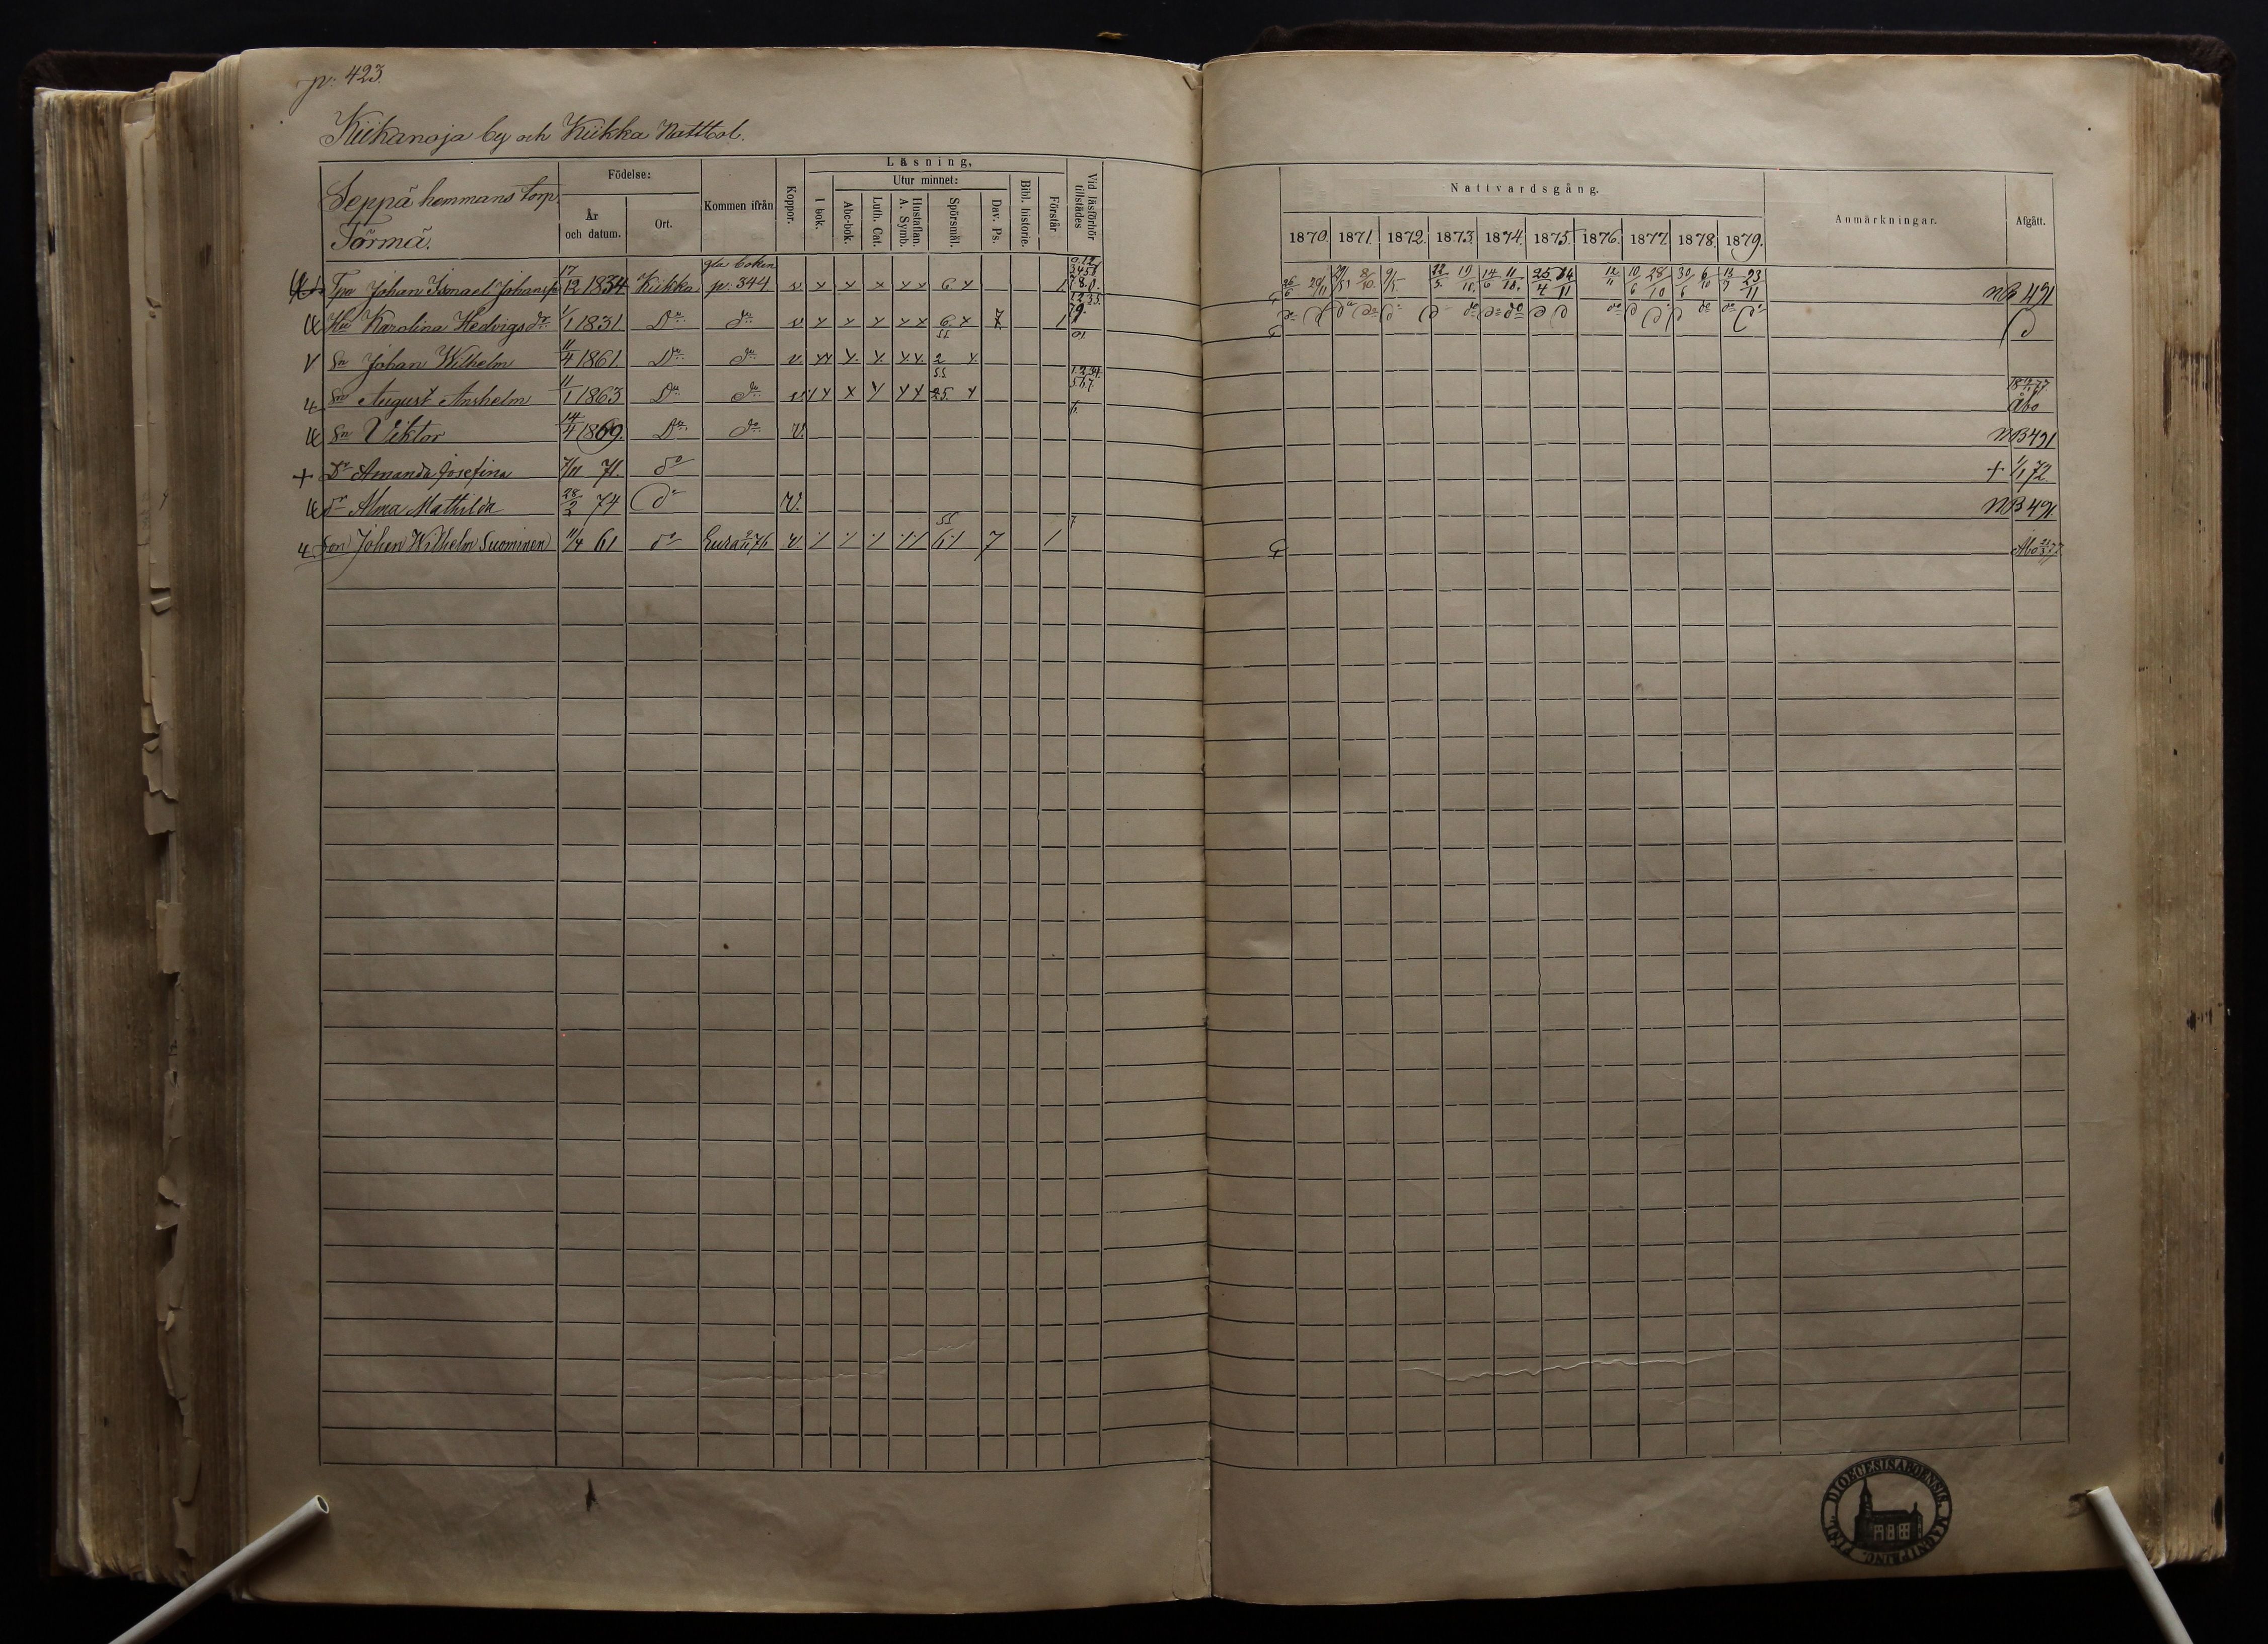 p. 423.
Kiikanoja by och Kiikka Nattlol.
Seppä hemmans torp
Törmä.
Födelse:
År och datum.
Ort.
Kommen ifrån
Koppor.
Läsning,
I bok.
Utur minnet:
Abc-bok.
Luth. Cat.
Hustaflan. A. Symb.
Spörsmål.
Dav. Ps.
Bibl. historie.
Förstår
Vid läsförhör tillstädes
Nattvardsgång.
1870. 1871. 1872. 1873. 1874. 1875. 1876. 1877. 1878. 1879.
Anmärkningar.
Afgått.
gla boken
Tpr Johan Ismael Johansso 17/12 1834 Kiikka p. 344 v x x x x x 6 x 1 26/6 20/11 8/10 9/5 22/5 19/11 14/6 11/10 25/4 14/11 12/11 10/6 28/10 30/6 6/10 13/7 23/11 NB 491
Hu Karolina Hedvigs dr 1/1 1831. Do do v x x x x x 6 x 1
V Sn Johan Wilhelm 11/4 1861. Do do v. xx x. x. x.x. 2 x.
Sn August Anshelm 11/1 1863 Do do v x x x x x x 25. x Åbo
Sn Viktor 14/4 1869. Do do v. NB 491
+ Dr Amanda Josefina 7/11 71. do + 1/1 72.
dr Alma Mathilda 28/2 74 do v. NB 491.
Son Johan Wilhelm Suominen 11/4 61 do Eura 2/11 76 v 7 1 Åbo 77
FINL. DIOECESIS ABOENSIS. MAGNI PRINC.